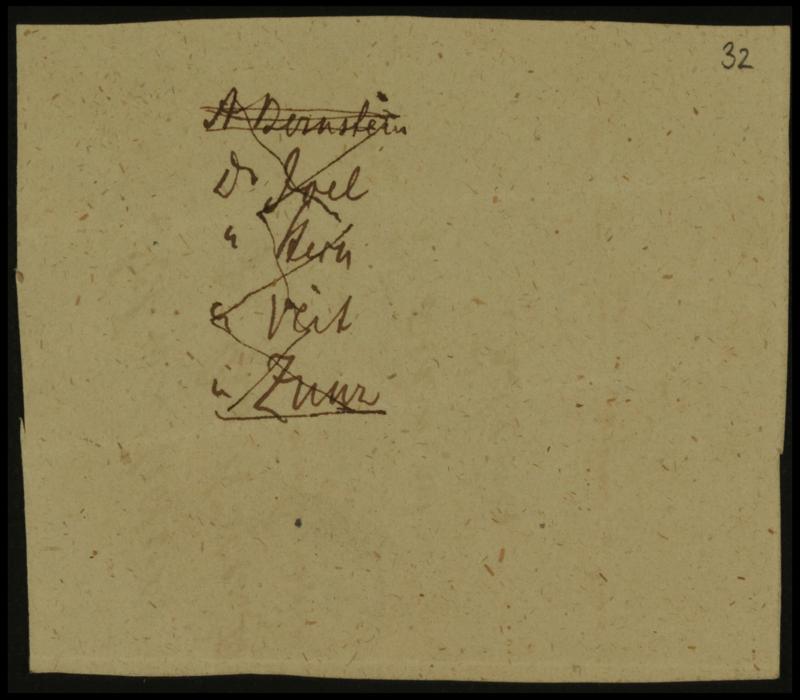 32
A Bernstein
Dr Joel
" Stern
" Veit
" Zunz